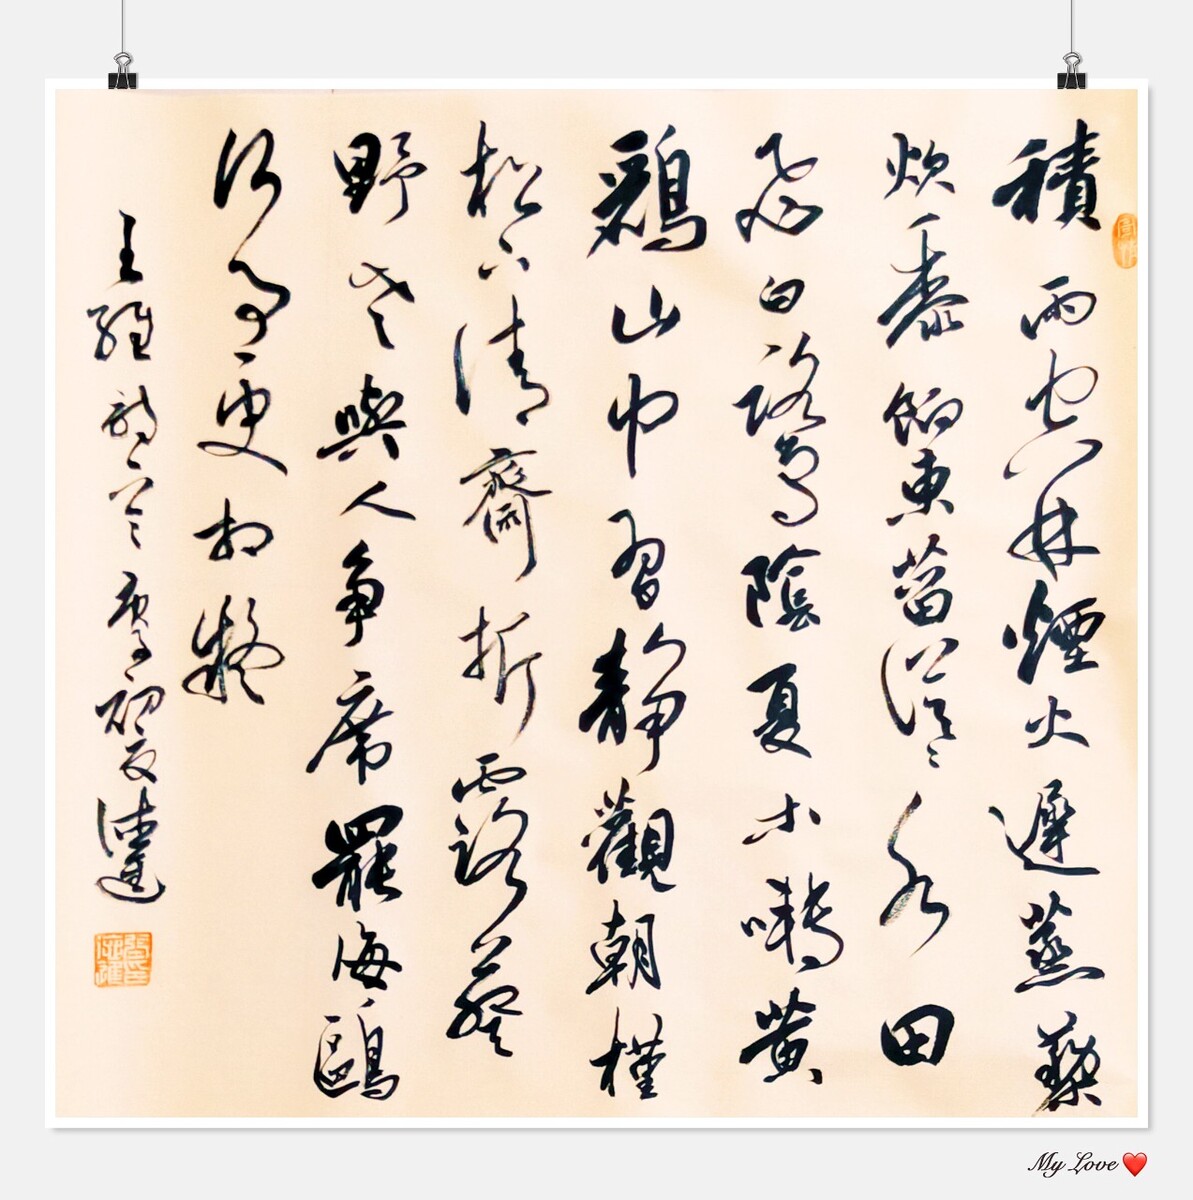 積雨空林煙火遲蒸藜
炊黍餉東菑漠漠水田
飛白鷺陰夏木囀黃
鸝山中習靜觀朝槿
松下清齋折露葵
野老與人爭席罷海鷗
何事更相疑
王維詩一首庚子初夏
My Love ❤️